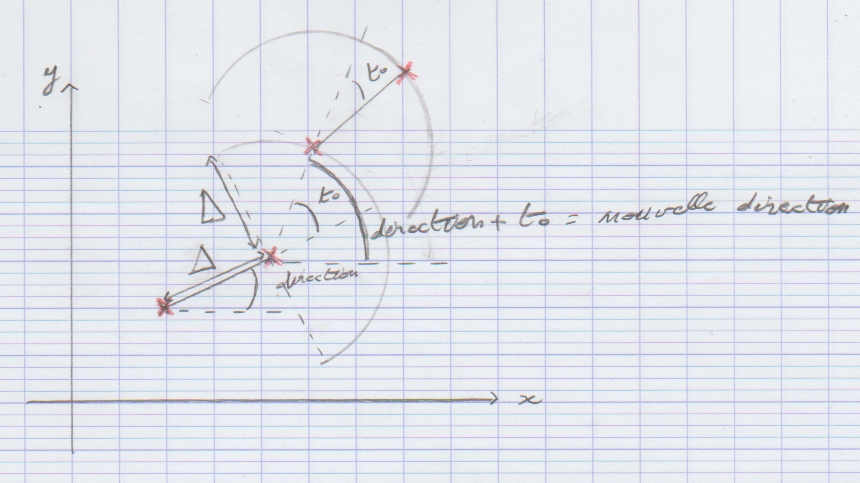 y
t₀
Δ
t₀
direction + t₀ = nouvelle direction
Δ
direction
x